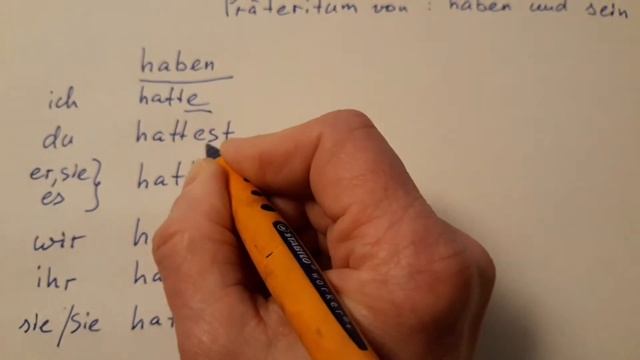 Präteritum von : haben und sein
haben
ich hatte
du hattest
er, sie
es
wir
ihr
sie/Sie
STABILO worker